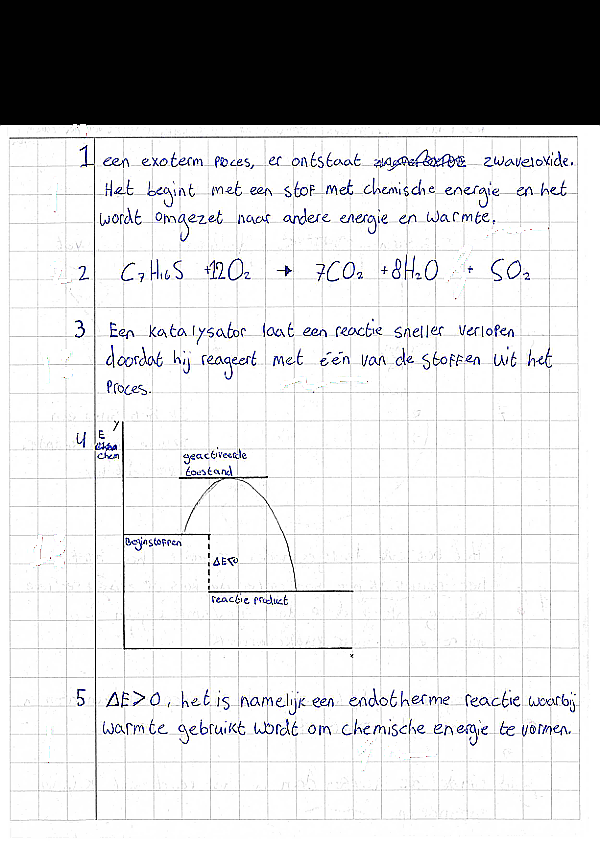 1 een exoterm proces, er ontstaat zwaveloxide.
Het begint met een stof met chemische energie en het
wordt omgezet naar andere energie en warmte.
2 C₇H₁₆S +12O₂ → 7CO₂ +8H₂O + SO₂
3 Een katalysator laat een reactie sneller verlopen
doordat hij reageert met één van de stoffen uit het
proces.
4
y
E
chem
geactiveerde
toestand
Beginstoffen
ΔE<0
reactie product
x
5 ΔE>0, het is namelijk een endotherme reactie waarbij
warmte gebruikt wordt om chemische energie te vormen.